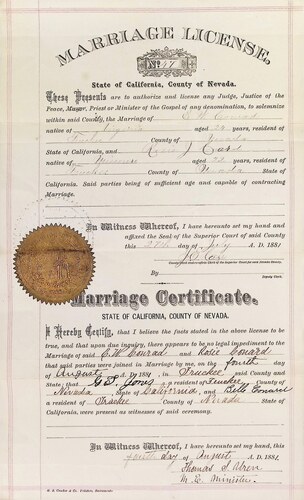 MARRIAGE LICENSE,
No. 47
State of California, County of Nevada.
These Presents are to authorize and license any Judge, Justice of the
Peace, Mayor, Priest or Minister of the Gospel of any denomination, to solemnize
within said County, the Marriage of
native of aged years, resident of
County of
State of California, and
native of aged 22 years, resident of
Truckee County of Nevada
California. Said parties being of sufficient age and capable of contracting
Marriage.
In Witness Whereof, I have hereunto set my hand and
affixed the Seal of the Superior Court of said County
this 27th day of July A. D. 1881
By
Deputy Clerk
Marriage Certificate.
STATE OF CALIFORNIA, COUNTY OF NEVADA.
I Hereby Certify, that I believe the facts stated in the above license to be
true, and that upon due inquiry, there appears to be no legal impediment to the
Marriage of said C. W. Conrad and Rosie Conard
that said parties were joined in Marriage by me, on the fourth day
of August 1881, in Truckee said County and
State; that G. F. Jones a resident of Truckee
Nevada, State of California, and Bell Conard
a resident of Truckee County of Nevada State of
were present as witnesses of said ceremony.
In Witness Whereof, I have hereunto set my hand this
fourth day of August A. D. 1881.
Thomas S. Uren
M. E. Minister.